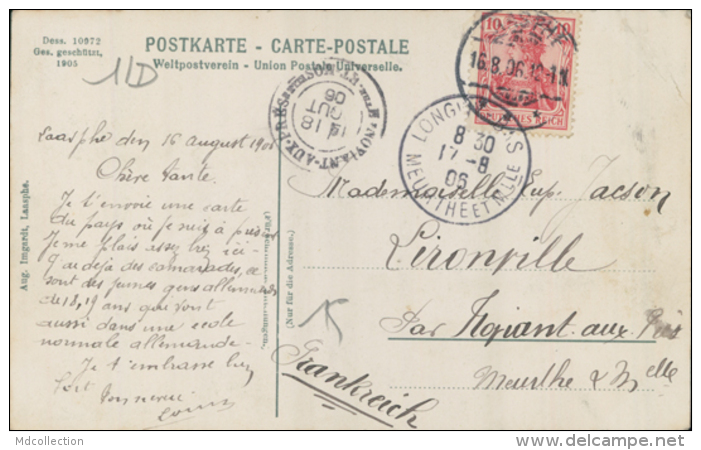 Dess. 10972
Ges. geschützt,
1905
POSTKARTE - CARTE-POSTALE
Weltpostverein - Union Postale Universelle.
1/D
10 10
DEUTSCHES REICH
16.8.06.12-1N
NOVIANT-AUX-PRES
18
06
LONGU
8 30
17 -8
06
MEURTHE ET M LLE
Laasphe den 16 august 190
Chère tante.
Je t'envoie une carte
du pays où je suis à présent
Je me plais assez chez ici -
J'ai déja des camarades, ce
sont des jeunes gens allemands
de 18, 19 ans qui vont
aussi dans une école
normale allemande -
Je t'embrasse bien
fort
Louis
Mademoiselle Eug. Jacson
Lironville
Par Noviant aux Prés
Meurthe & Mselle
Frankreich
(Nur für die Adresse.)
Aug. Imgardt, Laasphe.
Mdcollection
delcampe.net